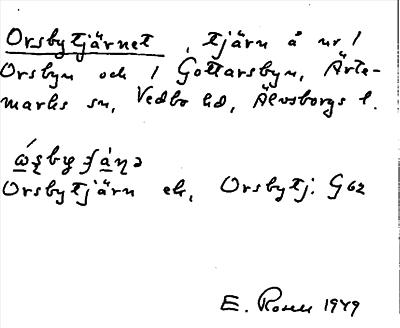 Orsbytjärnet, tjärn å nr 1
Orsbyn och 1 Gottarsbyn, Ärte-
marks sn, Vedbo hd, Älvsborgs l.
Orsbytjärn ek, Orsbytj. G 62
E. Rosell 1949